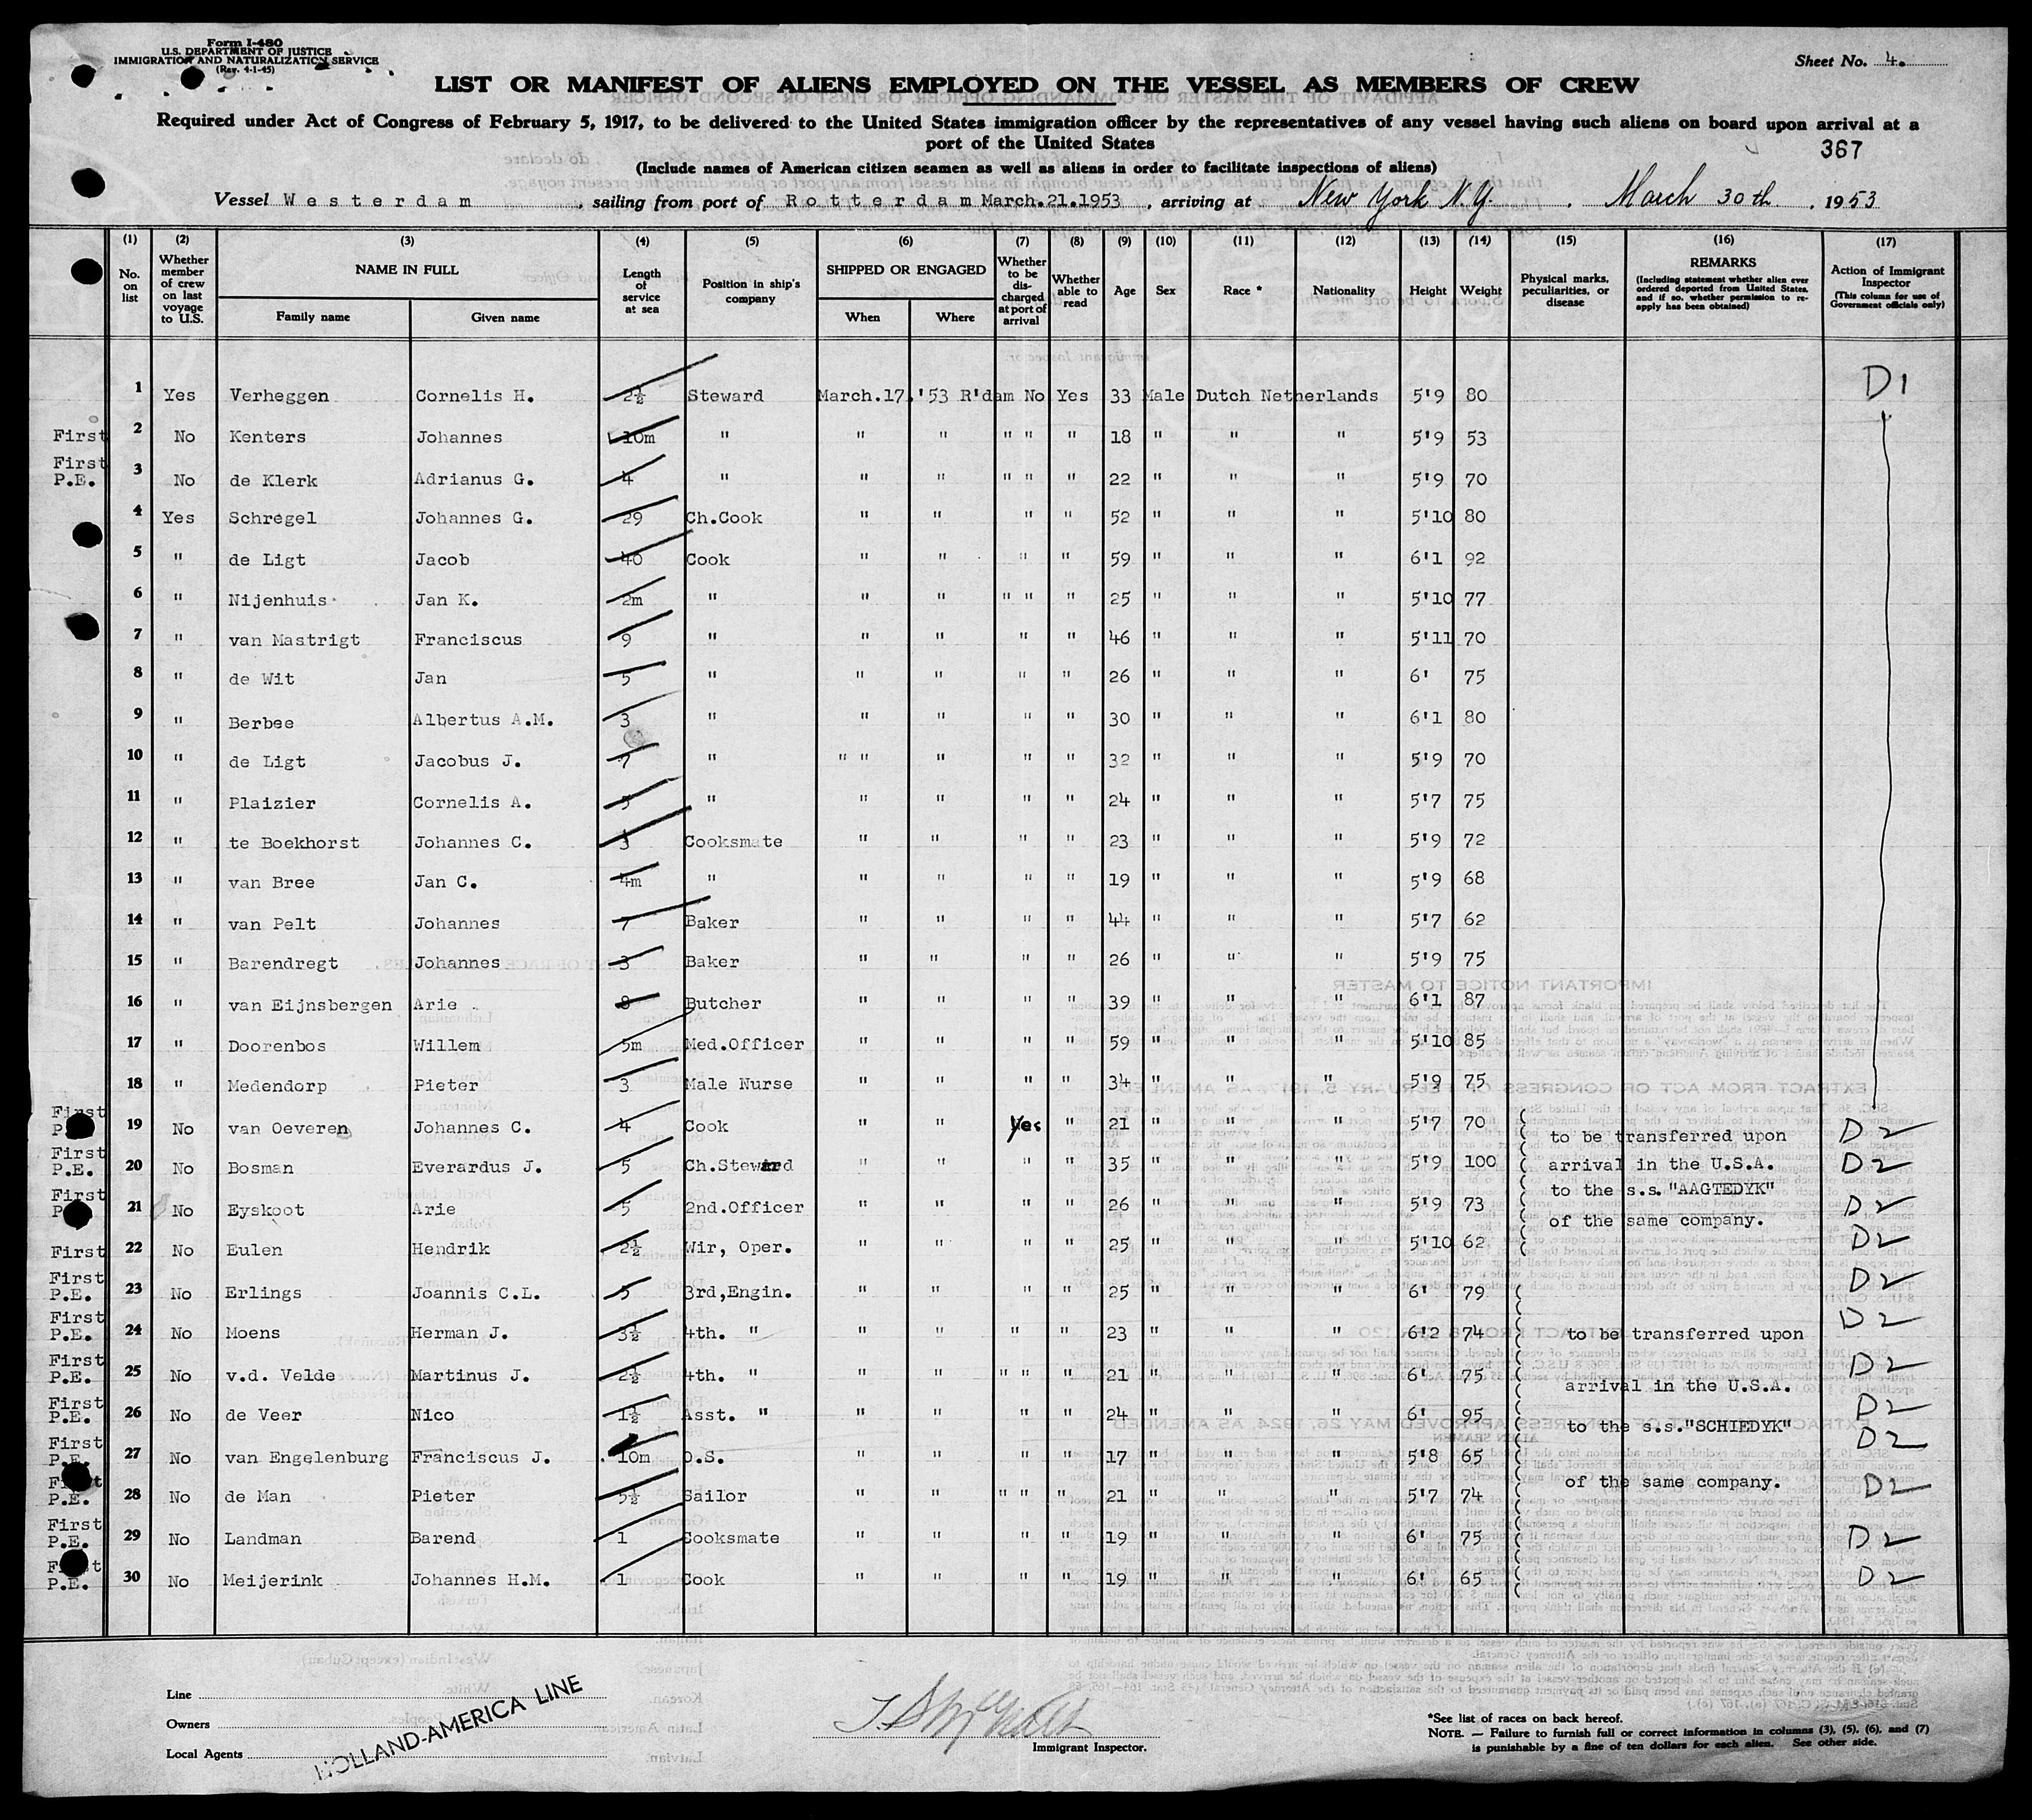 Form I-480
U.S. DEPARTMENT OF JUSTICE
IMMIGRATION AND NATURALIZATION SERVICE
(Rev. 4-1-45)
Sheet No. 4.
LIST OR MANIFEST OF ALIENS EMPLOYED ON THE VESSEL AS MEMBERS OF CREW
Required under Act of Congress of February 5, 1917, to be delivered to the United States immigration officer by the representatives of any vessel having such aliens on board upon arrival at a
port of the United States
367
(Include names of American citizen seamen as well as aliens in order to facilitate inspections of aliens)
Vessel Westerdam, sailing from port of Rotterdam March.21.1953, arriving at New York N.Y. March 30th, 1953
(1) No. on list
(2) Whether member of crew on last voyage to U.S.
(3) NAME IN FULL Family name Given name
(4) Length of service at sea
(5) Position in ship's company
(6) SHIPPED OR ENGAGED When Where
(7) Whether to be discharged at port of arrival
(8) Whether able to read
(9) Age
(10) Sex
(11) Race *
(12) Nationality
(13) Height
(14) Weight
(15) Physical marks, peculiarities, or disease
(16) REMARKS (Including statement whether alien ever ordered deported from United States, and if so, whether permission to reapply has been obtained)
(17) Action of Immigrant Inspector (This column for use of Government officials only)
1 Yes Verheggen Cornelis H. 2½ Steward March.17.'53 R'dam No Yes 33 Male Dutch Netherlands 5'9 80 D1
First 2 No Kenters Johannes 10m " " " " " " 18 " " " 5'9 53
First P.E. 3 No de Klerk Adrianus G. 4 " " " " " " 22 " " " 5'9 70
4 Yes Schregel Johannes G. 29 Ch.Cook " " " " 52 " " " 5'10 80
5 " de Ligt Jacob 40 Cook " " " " 59 " " " 6'1 92
6 " Nijenhuis Jan K. 2m " " " " " " 25 " " " 5'10 77
7 " van Mastrigt Franciscus 9 " " " " " 46 " " " 5'11 70
8 " de Wit Jan 5 " " " " " 26 " " " 6' 75
9 " Berbee Albertus A.M. 3 " " " " " 30 " " " 6'1 80
10 " de Ligt Jacobus J. 7 " " " " " " 32 " " " 5'9 70
11 " Plaizier Cornelis A. 5 " " " " " 24 " " " 5'7 75
12 " te Boekhorst Johannes C. 3 Cooksmate " " " " 23 " " " 5'9 72
13 " van Bree Jan C. 4m " " " " " 19 " " " 5'9 68
14 " van Pelt Johannes 7 Baker " " " " 44 " " " 5'7 62
15 " Barendregt Johannes 3 Baker " " " " 26 " " " 5'9 75
16 " van Eijnsbergen Arie 8 Butcher " " " " 39 " " " 6'1 87
17 " Doorenbos Willem 5m Med.Officer " " " " 59 " " " 5'10 85
18 " Medendorp Pieter 3 Male Nurse " " " " 34 " " " 5'9 75
First 19 No van Oeveren Johannes C. 4 Cook " " Yes " 21 " " " 5'7 70 to be transferred upon D2
First P.E. 20 No Bosman Everardus J. 5 Ch.Steward " " " " 35 " " " 5'9 100 arrival in the U.S.A. D2
to the s.s. "AAGTEDYK"
First 21 No Eyskoot Arie 5 2nd.Officer " " " " 26 " " " 5'9 73 of the same company. D2
First 22 No Eulen Hendrik 2½ Wir, Oper. " " " " 25 " " " 5'10 62 D2
First P.E. 23 No Erlings Joannis C.L. 5 3rd,Engin. " " " " 25 " " " 6' 79 D2
First P.E. 24 No Moens Herman J. 3½ 4th. " " " " " 23 " " " 6'2 74 to be transferred upon D2
First P.E. 25 No v.d. Velde Martinus J. 2½ 4th. " " " " " " 21 " " " 6' 75 arrival in the U.S.A. D2
First P.E. 26 No de Veer Nico 1½ Asst. " " " " " 24 " " " 6' 95 to the s.s."SCHIEDYK" D2
First P.E. 27 No van Engelenburg Franciscus J. 10m O.S. " " " " 17 " " " 5'8 65 D2
First P.E. 28 No de Man Pieter 5½ Sailor " " " " " 21 " " " 5'7 74 of the same company. D2
First P.E. 29 No Landman Barend 1 Cooksmate " " " " 19 " " " 6' 75 D2
First P.E. 30 No Meijerink Johannes H.M. 1 Cook " " " " 19 " " " 6' 65 D2
Line
Owners
Local Agents
HOLLAND-AMERICA LINE
Immigrant Inspector.
*See list of races on back hereof.
NOTE. — Failure to furnish full or correct information in columns (3), (5), (6), and (7)
is punishable by a fine of ten dollars for each alien. See other side.